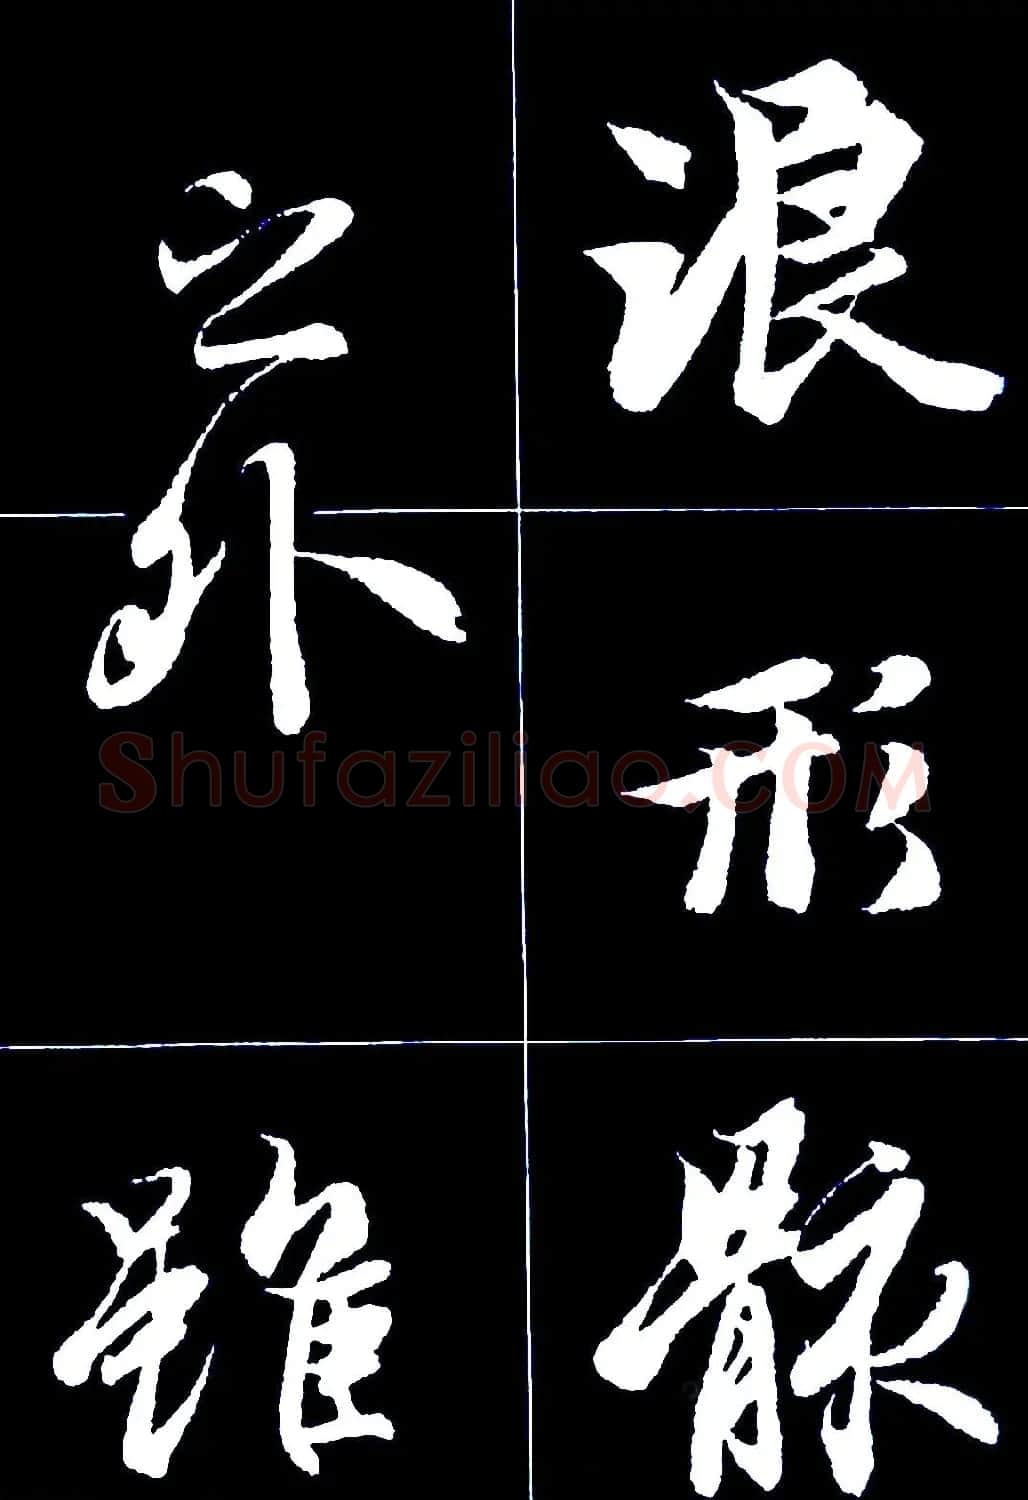 浪形骸
之外雖
Shufaziliao.COM